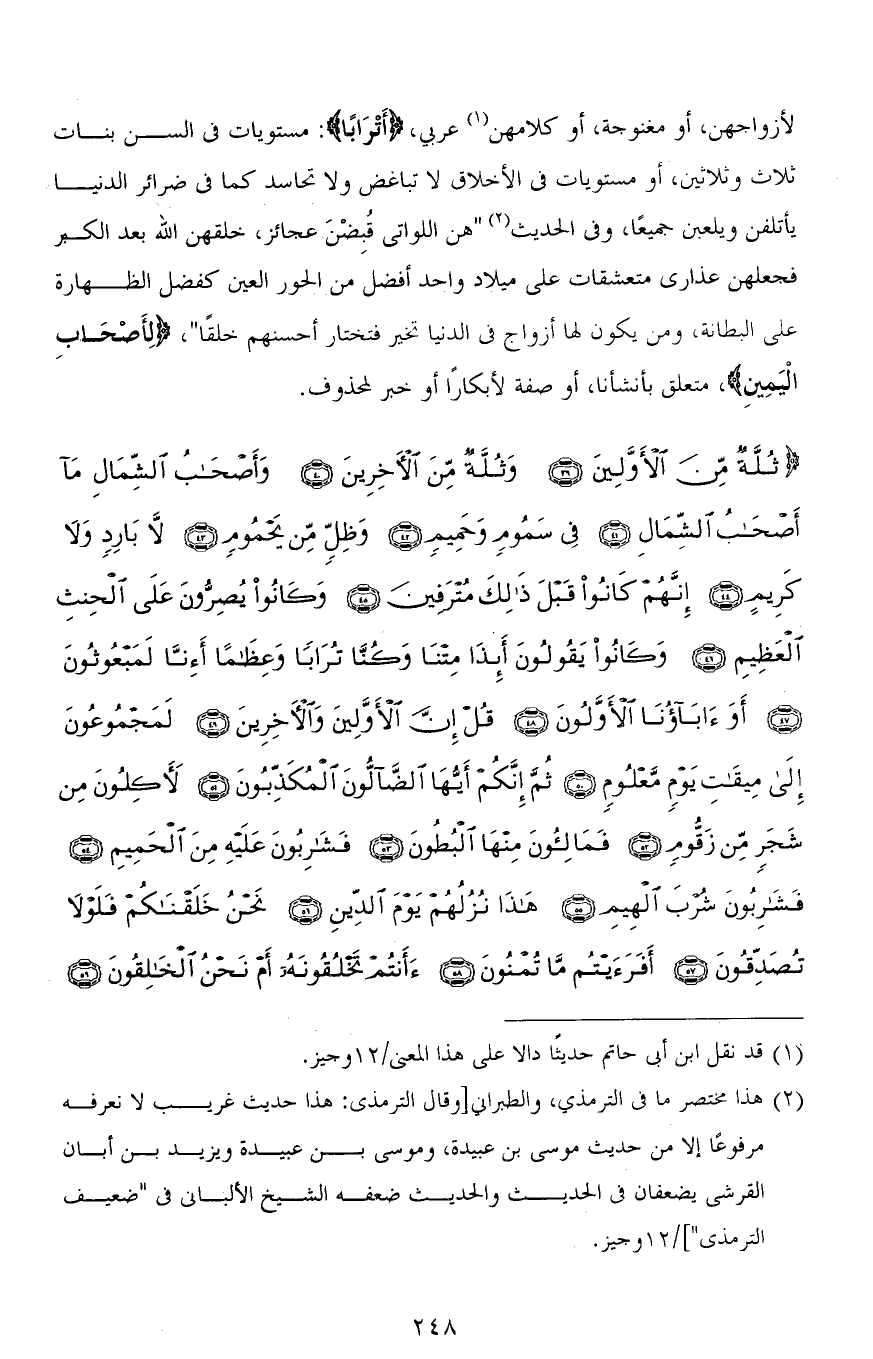 لأزواجهن، أو مغنوجة، أو كلامهن(١) عربي، ﴿أَتْرَابًا﴾: مستويات فى السن بنات
ثلاث وثلاثين، أو مستويات فى الأخلاق لا تباغض ولا تحاسد كما فى ضرائر الدنيا
يأتلفن ويلعبن جميعًا، وفى الحديث(٢) "هن اللواتى قُبِضْنَ عجائز، خلقهن الله بعد الكبر
فجعلهن عذارى متعشقات على ميلاد واحد أفضل من الحور العين كفضل الظهارة
على البطانة، ومن يكون لها أزواج فى الدنيا تخير فتختار أحسنهم خلقًا"، ﴿لِأَصْحَابِ
الْيَمِينِ﴾، متعلق بأنشأنا، أو صفة لأبكارًا أو خبر لمحذوف.
﴿ ثُلَّةٌ مِّنَ ٱلْأَوَّلِينَ ٣٩ وَثُلَّةٌ مِّنَ ٱلْأَخِرِينَ ٤٠ وَأَصْحَٰبُ ٱلشِّمَالِ مَآ
أَصْحَٰبُ ٱلشِّمَالِ ٤١ فِى سَمُومٍ وَحَمِيمٍ ٤٢ وَظِلٍّ مِّن يَحْمُومٍ ٤٣ لَّا بَارِدٍ وَلَا
كَرِيمٍ ٤٤ إِنَّهُمْ كَانُوا۟ قَبْلَ ذَٰلِكَ مُتْرَفِينَ ٤٥ وَكَانُوا۟ يُصِرُّونَ عَلَى ٱلْحِنثِ
ٱلْعَظِيمِ ٤٦ وَكَانُوا۟ يَقُولُونَ أَئِذَا مِتْنَا وَكُنَّا تُرَابًا وَعِظَٰمًا أَءِنَّا لَمَبْعُوثُونَ
٤٧ أَوَ ءَابَآؤُنَا ٱلْأَوَّلُونَ ٤٨ قُلْ إِنَّ ٱلْأَوَّلِينَ وَٱلْأَخِرِينَ ٤٩ لَمَجْمُوعُونَ
إِلَىٰ مِيقَٰتِ يَوْمٍ مَّعْلُومٍ ٥٠ ثُمَّ إِنَّكُمْ أَيُّهَا ٱلضَّآلُّونَ ٱلْمُكَذِّبُونَ ٥١ لَأَكِلُونَ مِن
شَجَرٍ مِّن زَقُّومٍ ٥٢ فَمَالِئُونَ مِنْهَا ٱلْبُطُونَ ٥٣ فَشَٰرِبُونَ عَلَيْهِ مِنَ ٱلْحَمِيمِ ٥٤
فَشَٰرِبُونَ شُرْبَ ٱلْهِيمِ ٥٥ هَٰذَا نُزُلُهُمْ يَوْمَ ٱلدِّينِ ٥٦ نَحْنُ خَلَقْنَٰكُمْ فَلَوْلَا
تُصَدِّقُونَ ٥٧ أَفَرَءَيْتُم مَّا تُمْنُونَ ٥٨ ءَأَنتُمْ تَخْلُقُونَهُۥٓ أَمْ نَحْنُ ٱلْخَٰلِقُونَ ٥٩
(١) قد نقل ابن أبى حاتم حديثًا دالا على هذا المعنى/١٢وجيز.
(٢) هذا مختصر ما فى الترمذي، والطبراني[وقال الترمذى: هذا حديث غريب لا نعرفه
مرفوعًا إلا من حديث موسى بن عبيدة، وموسى بن عبيدة ويزيد بن أبان
القرشى يضعفان فى الحديث والحديث ضعفه الشيخ الألبانى فى "ضعيف
الترمذى"]/١٢وجيز.
٢٤٨